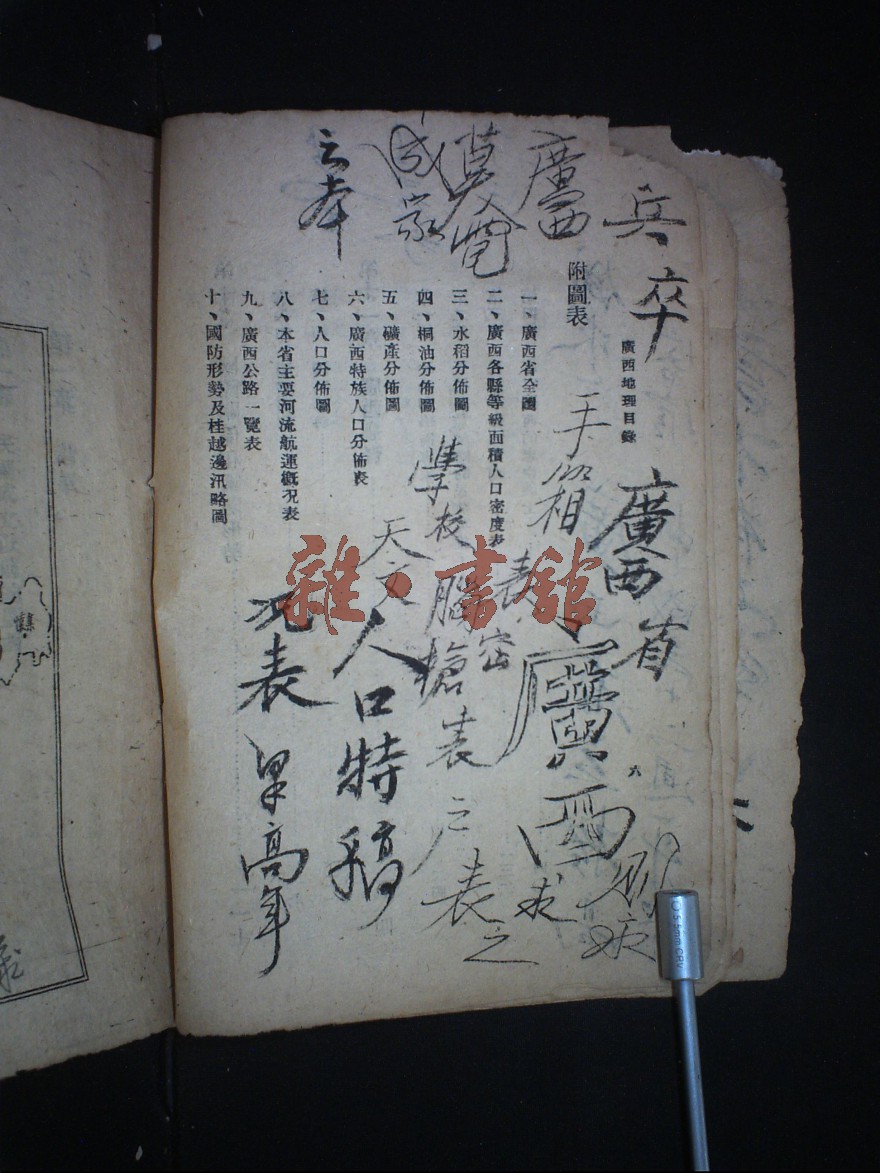 兵卒
廣西地理目錄
廣西省
六
附圖表
一、廣西省全圖
二、廣西各縣等級面積人口密度表
三、水稻分佈圖
四、桐油分佈圖
五、礦產分佈圖
六、廣西特族人口分佈表
七、人口分佈圖
八、本省主要河流航運概況表
九、廣西公路一覽表
十、國防形勢及桂越邊汛略圖
廣西
廣西
成家
之本
學校
表之
天文
人口特稿
況表
高年
雜·書館
5.5mm CRV